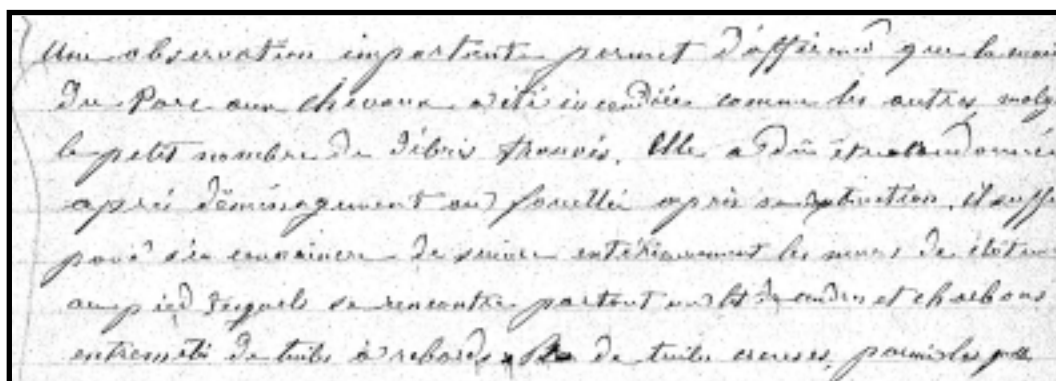 Une observation importante permet d'affirmer que la mai
du Parc aux chevaux a été incendiée comme les autres malg
le petit nombre de débris trouvés. Elle a dû être abandonnée
après déménagement ou fouillée après sa destruction. il suffi
pour s'en convaincre de suivre extérieurement les murs de clôture
au pied desquels se rencontre partout un lit de cendres et charbons
entremêlé de tuiles à rebords, de tuiles creuses, parmi les